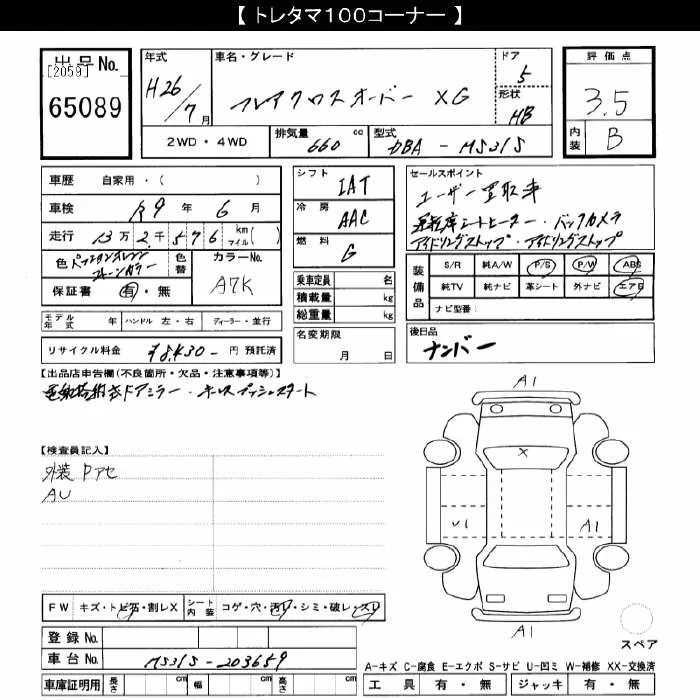 【 トレタマ100コーナー 】
出品No.
[2059]
65089
年式
H26/7月
車名・グレード
フレアクロスオーバー XG
ドア
5
形状
HB
評価点
3.5
内装
B
2WD・4WD
排気量
660 cc
型式
DBA - MS31S
車歴 自家用・( )
車検 R9年 6月
走行 13万 2千 576 km マイル( )
色
色替
カラーNo.
A7K
保証書 有・無
モデル年式 年
ハンドル 左・右
ディーラー・並行
リサイクル料金 ¥8,430- 円 預託済
シフト
IAT
冷房
AAC
燃料
G
乗車定員 名
積載量 kg
総重量 kg
名変期限
月 日
セールスポイント
ユーザー買取車
運転席シートヒーター・バックカメラ
アイドリングストップ・アイドリングストップ
装備品
S/R 純A/W P/S P/W ABS
純TV 純ナビ 革シート 外ナビ エアB
ナビ型番:
後日品
ナンバー
【出品店申告欄(不良箇所・欠品・注意事項等)】
電動格納式ドアミラー・キーレスプッシュスタート
【検査員記入】
外装 Pアセ
AU
A1
X
U1
A1
A1
スペア
FW キズ・トビ石・割レX
シート内装 コゲ・穴・汚レ・シミ・破レ・スレ
登録 No.
車台 No. MS31S-203659
車庫証明用 長さ cm 幅 cm 高さ cm
A-キズ C-腐食 E-エクボ S-サビ U-凹ミ W-補修 XX-交換済
工具 有・無 ジャッキ 有・無